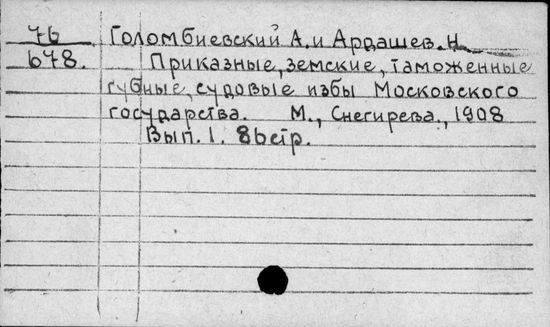 76 Голомбиевский А. и Ардашев. Н.
678. Приказные, земские, таможенные
губные, судовые избы Московского
государства. М., Снегирева., 1908
Вып. 1. 86стр.